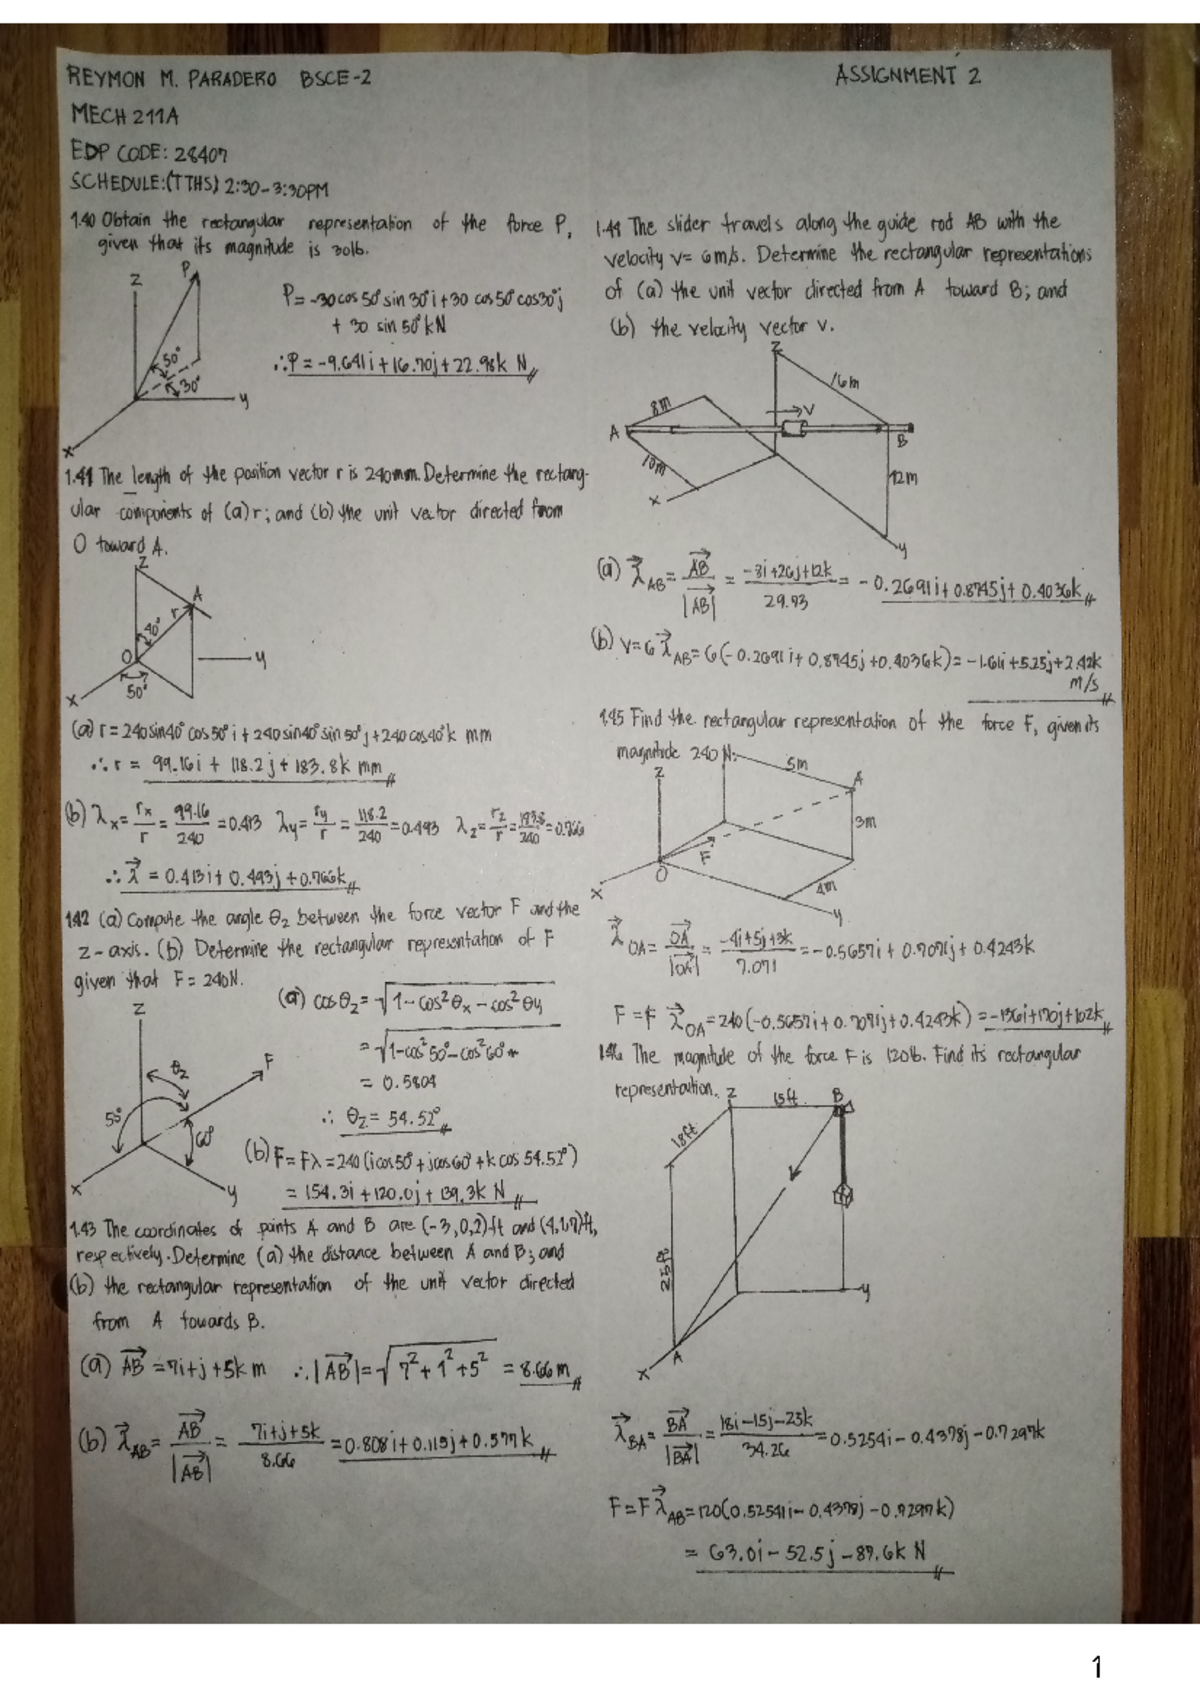 REYMON M. PARADERO BSCE-2
ASSIGNMENT 2
MECH 211A
EDP CODE: 28407
SCHEDULE:(TTHS) 2:30-3:30PM
1.40 Obtain the rectangular representation of the force P,
given that its magnitude is 30lb.
z
P
50°
30°
y
x
P= -30cos 50° sin 30° i + 30 cos 50° cos30° j
+ 30 sin 50° k N
∴P = -9.641i + 16.70j + 22.98k N
1.41 The length of the position vector r is 240mm. Determine the rectang-
ular components of (a) r; and (b) the unit vector directed from
O toward A.
z
A
r
O
y
50°
x
(a) r = 240sin40° cos 50° i + 240sin40° sin 50° j + 240 cos40° k mm
∴ r = 99.16i + 118.2j + 183.8k mm
(b) λx = rx/r = 99.16/240 = 0.413 λy = ry/r = 118.2/240 = 0.493 λz = rz/r = 183.8/240 = 0.766
∴ λ⃗ = 0.413i + 0.493j + 0.766k
1.42 (a) Compute the angle θz between the force vector F and the
z-axis. (b) Determine the rectangular representation of F
given that F = 240N.
z
θz
F
60°
x
y
(a) cosθz = √1-cos²θx - cos²θy
= √1-cos²50°-cos²60°
= 0.5804
∴ θz = 54.52°
(b) F = Fλ = 240 (icos50° + jcos60° + k cos 54.52°)
= 154.3i + 120.0j + 139.3k N
1.43 The coordinates of points A and B are (-3,0,2)ft and (4,1,7)ft,
respectively. Determine (a) the distance between A and B; and
(b) the rectangular representation of the unit vector directed
from A towards B.
(a) AB⃗ = 7i + j + 5k m ∴ |AB⃗| = √7² + 1² + 5² = 8.66 m
(b) λ⃗AB = AB⃗/|AB⃗| = 7i+j+5k/8.66 = 0.808i + 0.115j + 0.577k
1.44 The slider travels along the guide rod AB with the
velocity v= 6m/s. Determine the rectangular representations
of (a) the unit vector directed from A toward B; and
(b) the velocity vector v.
z
16m
8m
V
A
B
10m
12m
x
y
(a) λ⃗AB = AB⃗/|AB⃗| = -8i+26j+12k/29.73 = -0.2691i + 0.8745j + 0.4036k
(b) V = 6λ⃗AB = 6(-0.2691i + 0.8745j + 0.4036k) = -1.61i + 5.25j + 2.42k
m/s
1.45 Find the rectangular representation of the force F, given its
magnitude 240 N.
5m
z
A
3m
F
O
x
4m
y
λ⃗OA = OA⃗/|OA⃗| = -4i+5j+3k/7.071 = -0.5657i + 0.7071j + 0.4243k
F = F λ⃗OA = 240(-0.5657i + 0.7071j + 0.4243k) = -136i + 170j + 102k
1.46 The magnitude of the force F is 120lb. Find its rectangular
representation.
z
15ft
B
18ft
25ft
y
A
x
λ⃗BA = BA⃗/|BA⃗| = 18i-15j-25k/34.26 = 0.5254i - 0.4378j - 0.7297k
F = F λ⃗AB = 120(0.5254i - 0.4378j - 0.7297k)
= 63.0i - 52.5j - 87.6k N
1